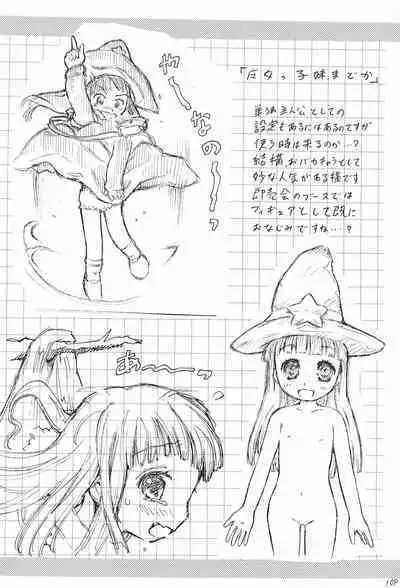 「広女っ子妹まどか」
や〜〜なの〜〜っ
単独主人公としての
設定もあるにはあるのですが
使う時は来るのか…?
結構おバカちゃんとして
妙な人気がある様です
即売会のブースでは
フィギュアとして既に
おなじみですね…?
あ〜〜っ
109